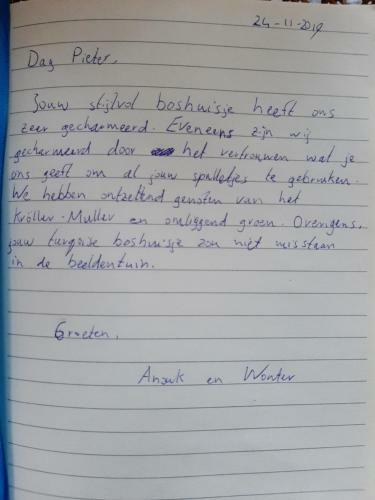 24-11-2019
Dag Pieter,
Jouw stijlvol boshuisje heeft ons
zeer gecharmeerd. Eveneens zijn wij
gecharmeerd door het vertrouwen wat je
ons geeft om al jouw spulletjes te gebruiken.
We hebben ontzettend genoten van het
Kröller-Muller en omliggend groen. Overigens,
jouw turqoise boshuisje zou niet misstaan
in de beeldentuin.
Groeten,
Anouk en Wouter